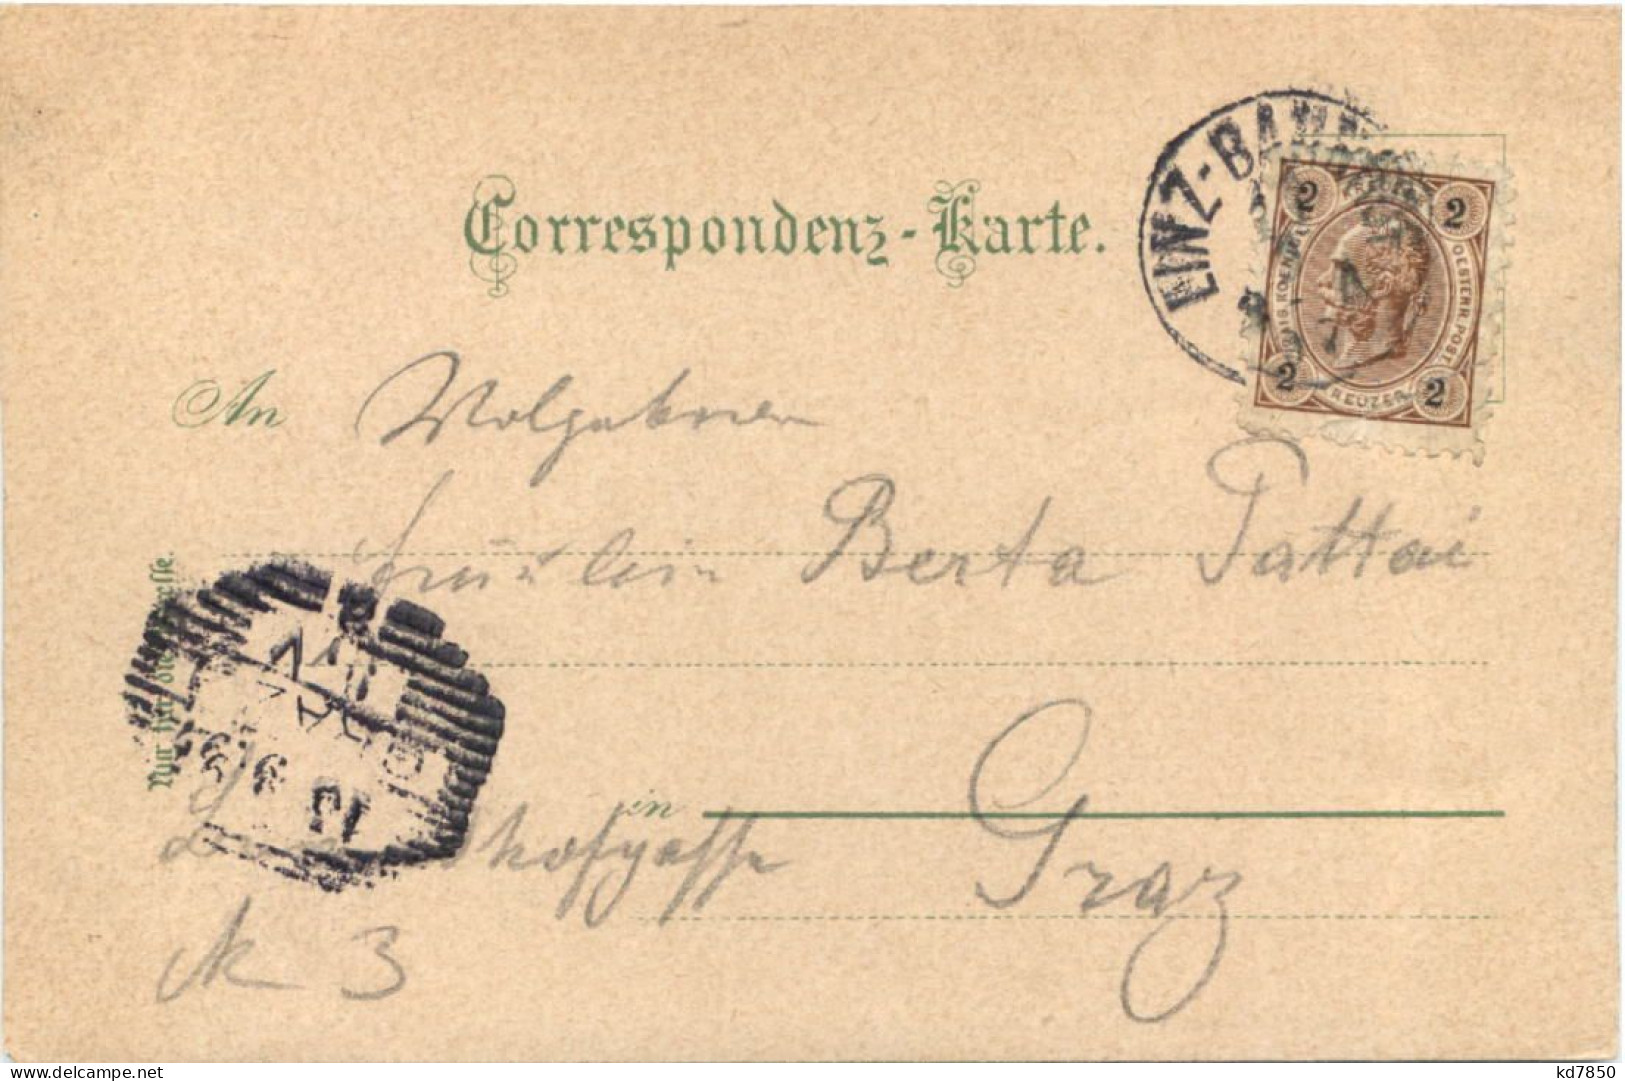 Correspondenz-Karte.
LINZ-BAHN
2 2
KAIS. KOENIGL. OESTERR. POST.
2 KREUZER 2
An Wolgeboren
Fräulein Berta Pattai
Nur für die Adresse.
GRAZ
in Graz
hofgasse
N 3
delcampe.net
kd7850